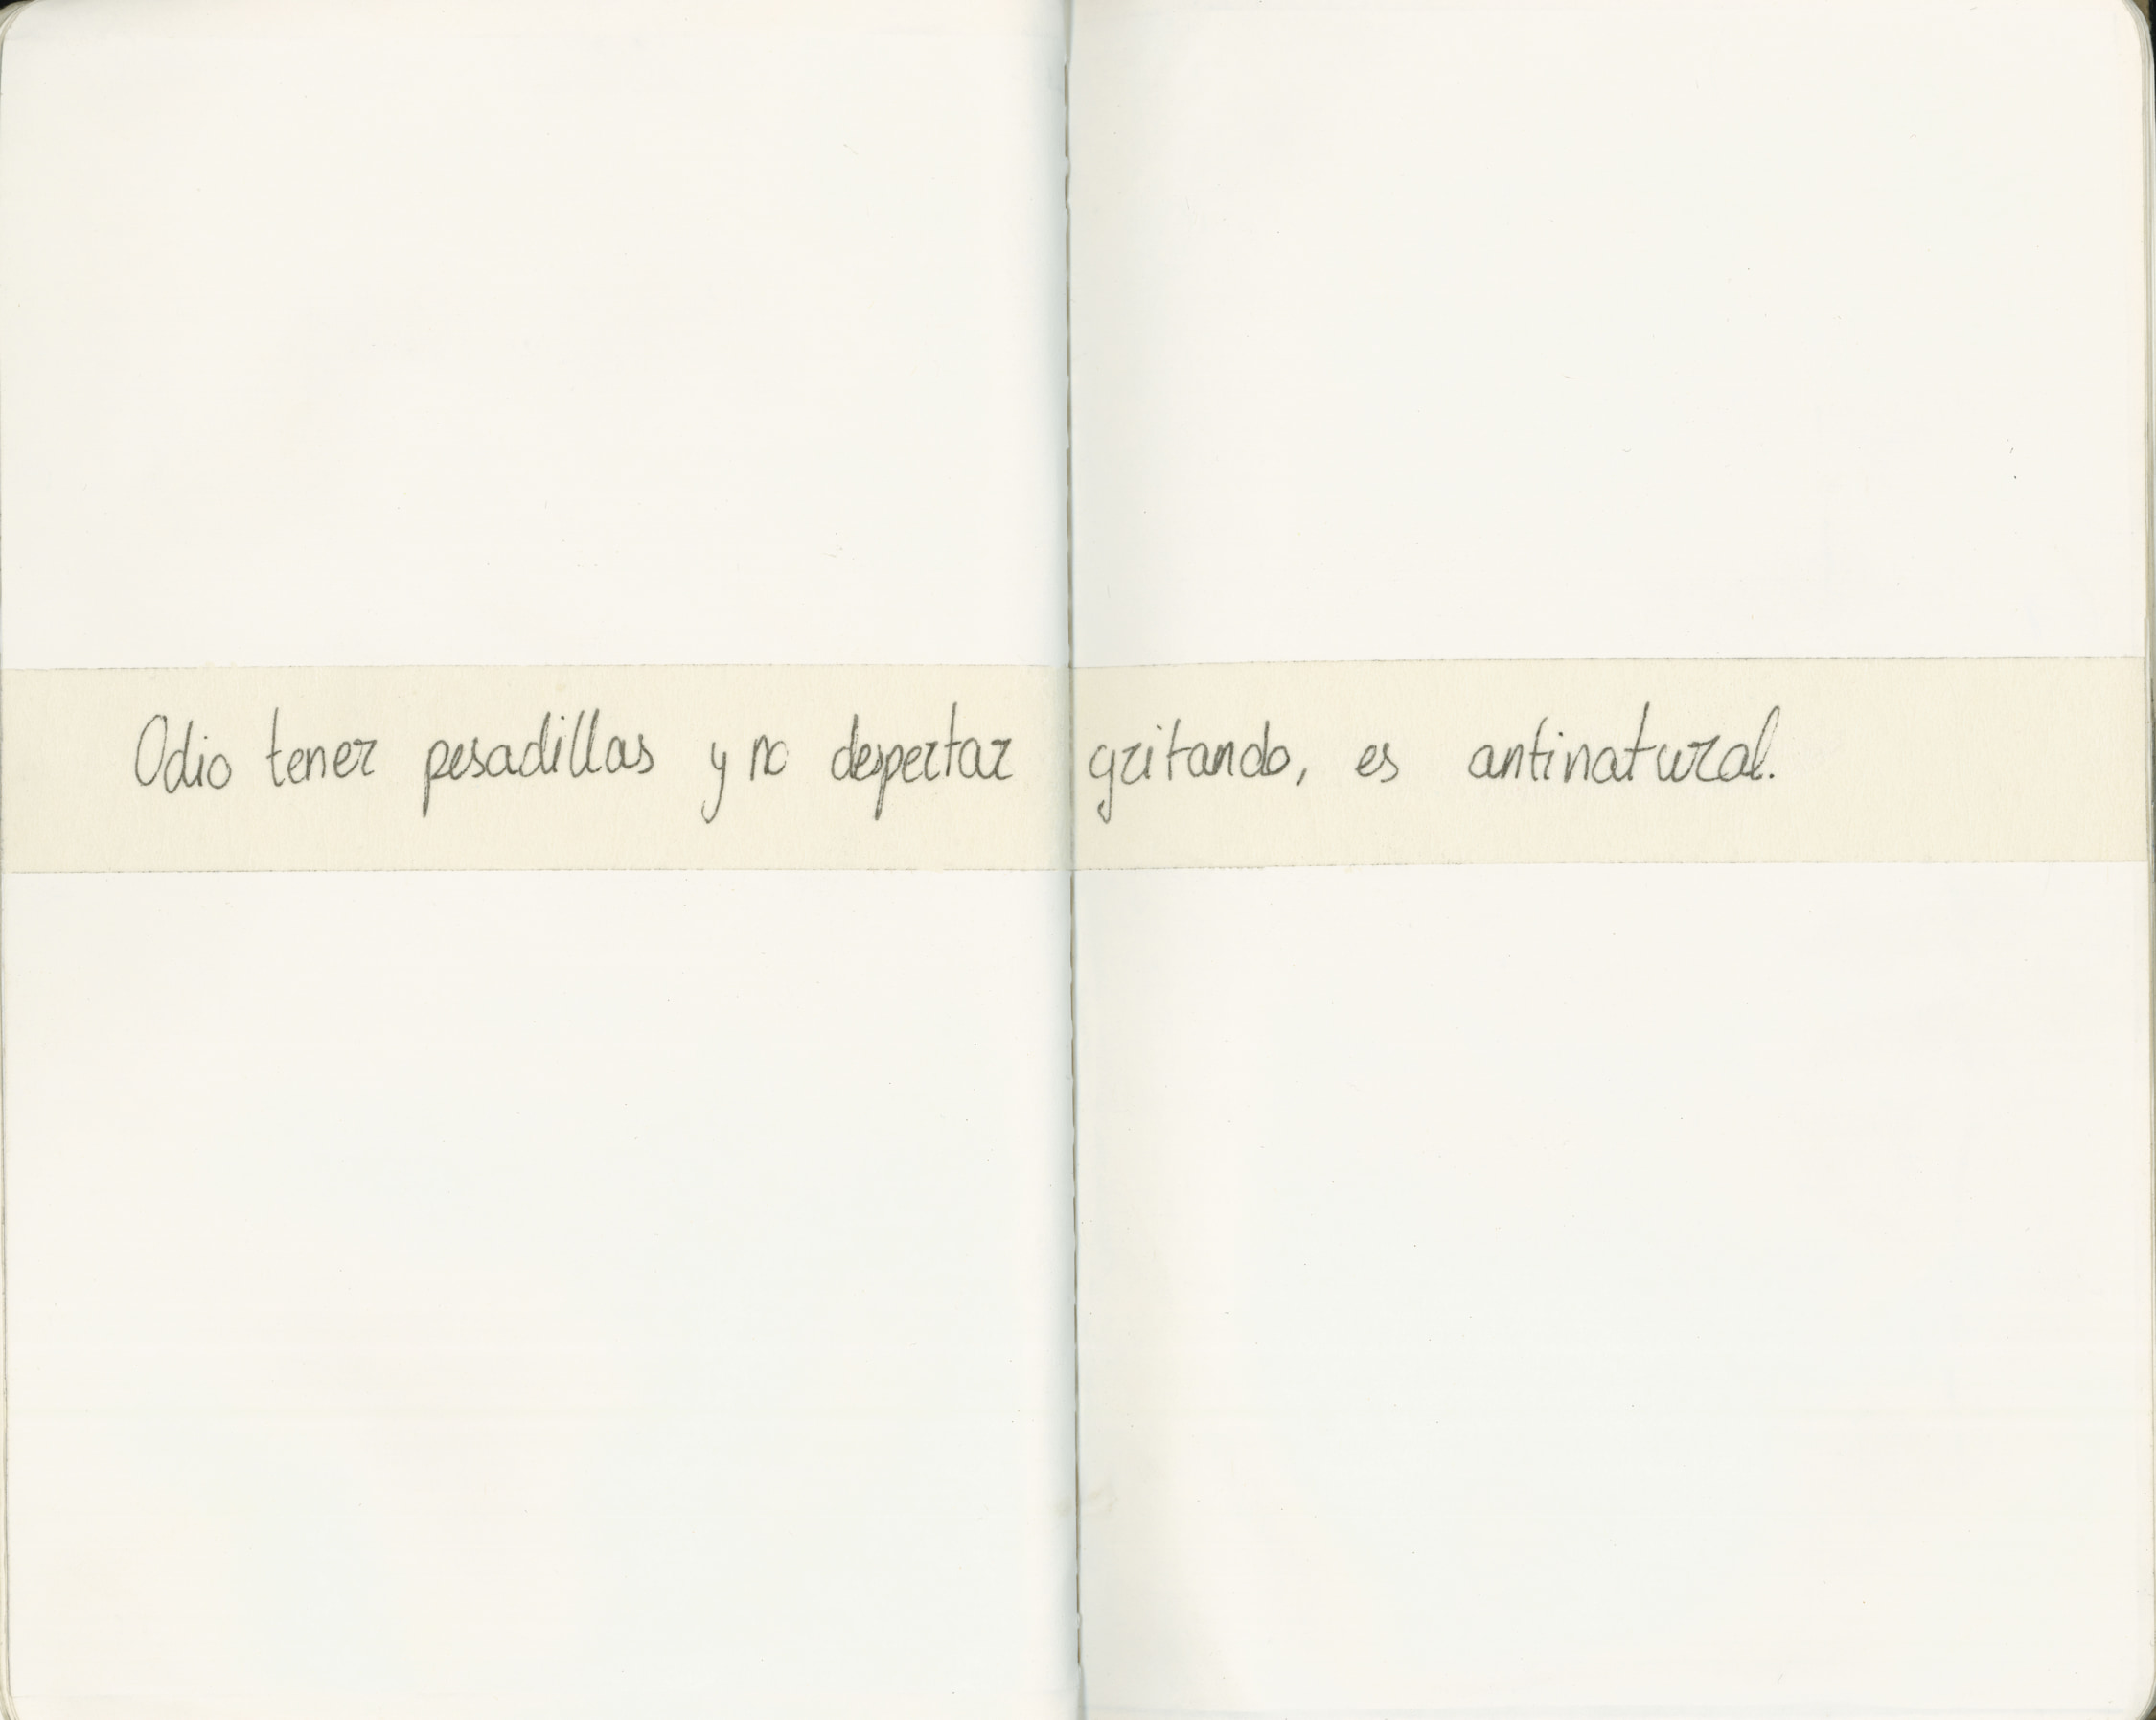 Odio tener pesadillas y no despertar gritando, es antinatural.